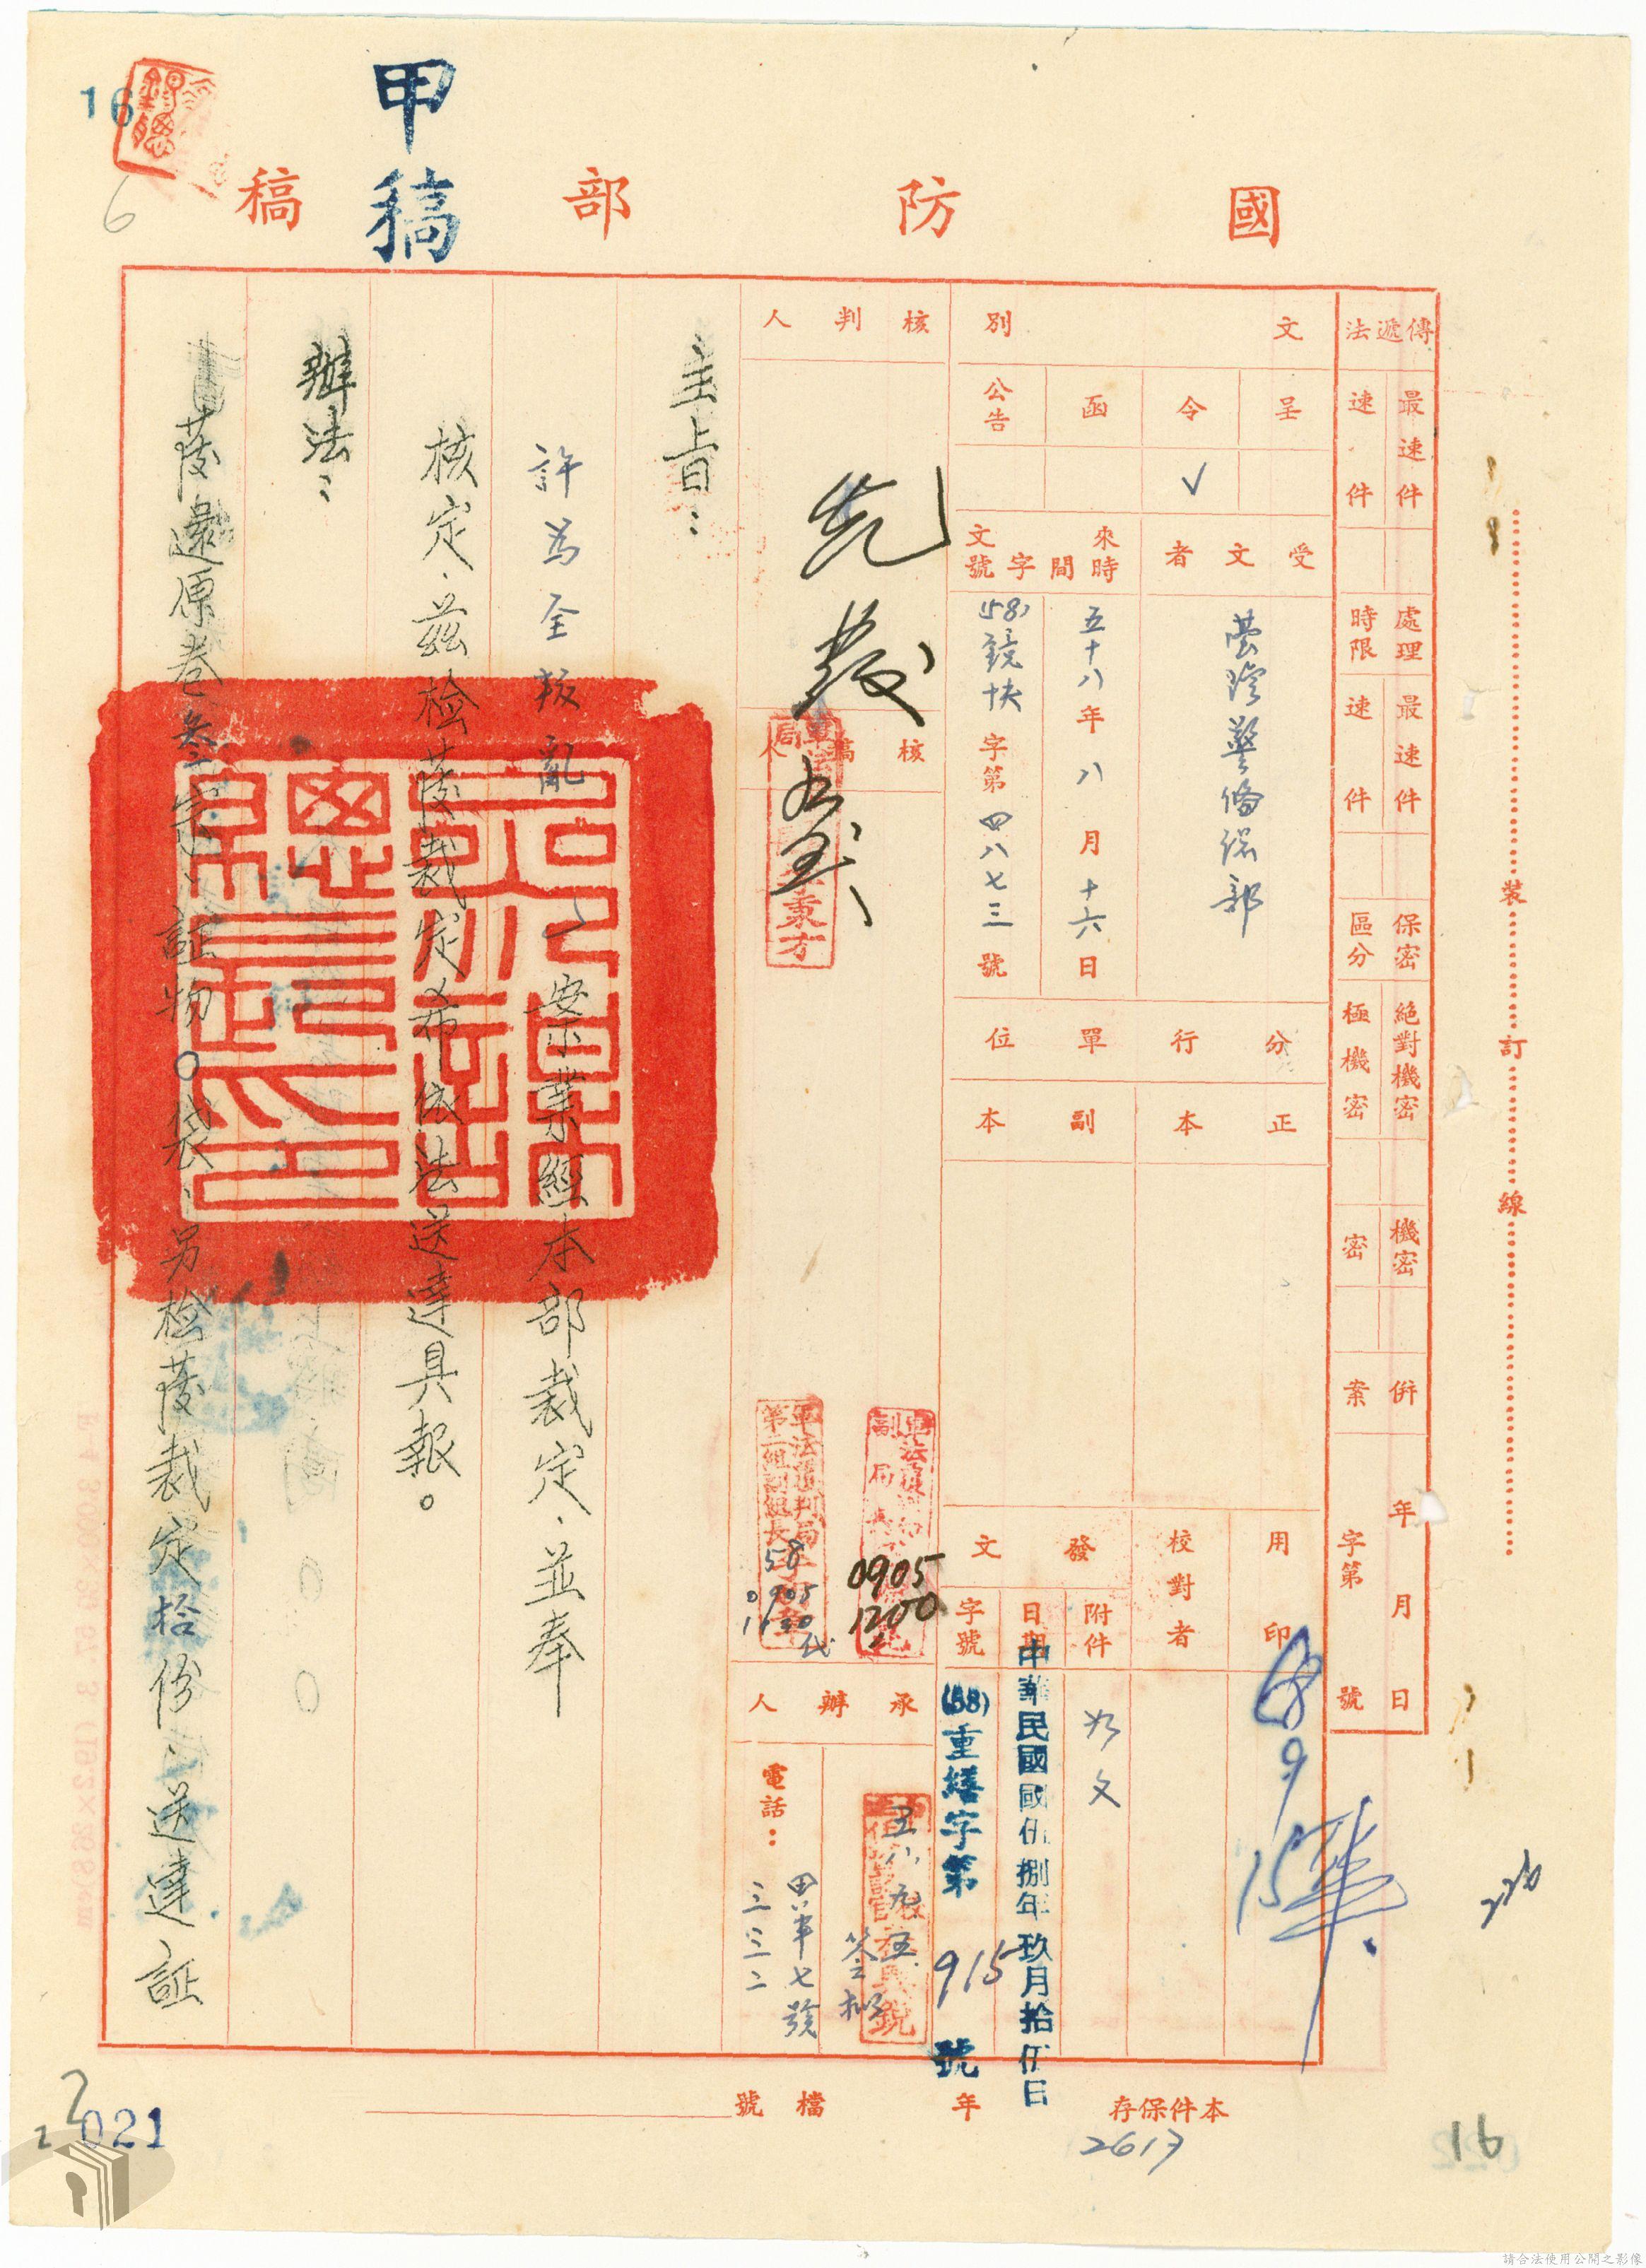 16
6
甲稿
國防部稿
傳遞法
最速件
速件
處理時限
最速件
速件
保密區分
絕對機密
極機密
機密
密
併案
年月日
字第號
文別
呈
令
函
公告
✓
受文者
臺灣警備總部
來文時間字號
五十八年八月十六日
(58)鏡快字第四八七三號
分行單位
正本
副本
用印
58
9
15
校對者
發文
附件
如文
日期
中華民國伍捌年玖月拾伍日
字號
(58)重繕字第915號
核判人
先發
核稿人
0905
1200
軍法覆判局
第二組副組長
58
0905
1100
代
承辦人
五八九五
簽擬
電話:
甲單七號
三三三二
主旨:
許為全叛亂一案業經本部裁定、並奉
核定、茲檢發裁定希依法送達具報。
辦法:
一、發還原卷叁宗、証物0袋、另檢發裁定拾份、送達証
本件保存年
2613
檔號
裝
訂
線
021
2
16
請合法使用公開之影像